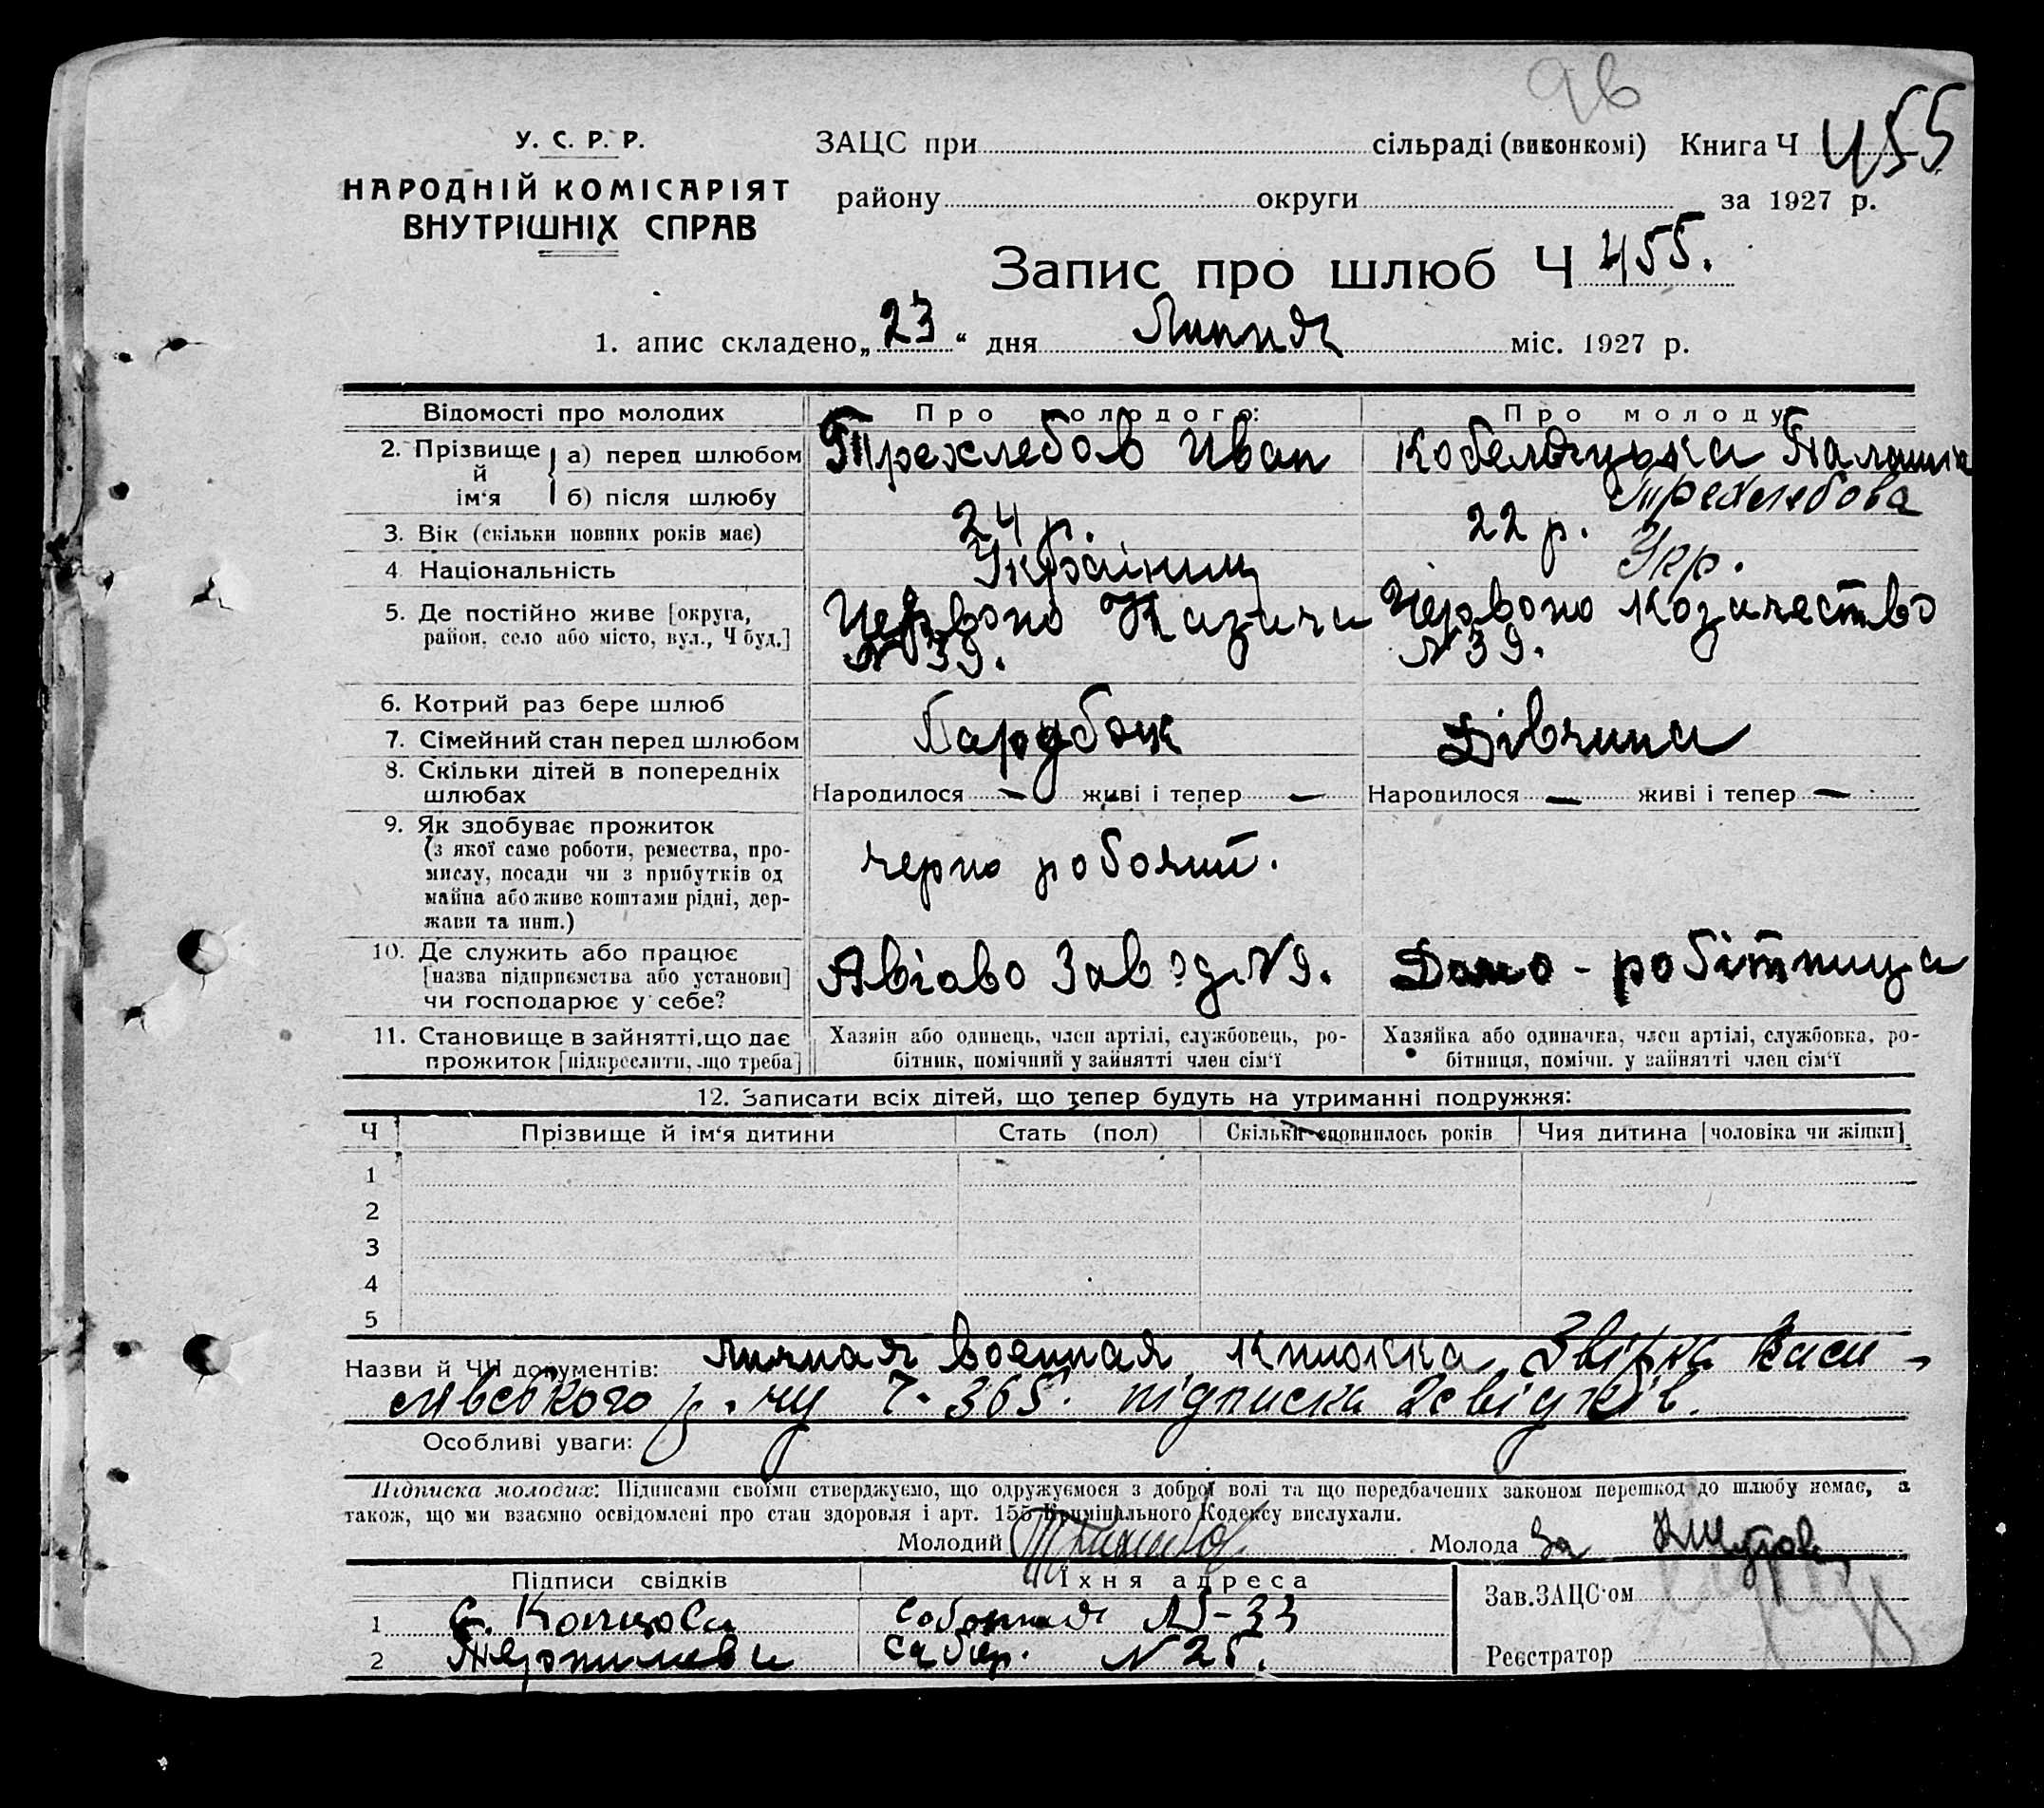 96
У. С. Р. Р.
НАРОДНІЙ КОМІСАРІЯТ
ВНУТРІШНІХ СПРАВ
ЗАЦС при сільраді (виконкомі) Книга Ч 455
району округи за 1927 р.
Запис про шлюб Ч 455.
1. апис складено „23“ дня Липня міс. 1927 р.
Відомості про молодих Про молодого: Про молоду
2. Прізвище й ім‘я а) перед шлюбом Трехлебов Иван Кобеляцька Палашка
б) після шлюбу Трехлебова
3. Вік (скільки повних років має) 24 р. 22 р.
4 Національність Українец Укр.
5. Де постійно живе [округа, Червоно Казача Червоно Козачество
район, село або місто, вул., Ч буд.] N 39. N 39.
6. Котрий раз бере шлюб
7. Сімейний стан перед шлюбом Парубок Дівчина
8. Скільки дітей в попередніх
шлюбах Народилося — живі і тепер — Народилося — живі і тепер —
9. Як здобуває прожиток
(з якої саме роботи, ремества, про-
мислу, посади чи з прибутків од черно робочий.
майна або живе коштами рідні, дер-
жави та инш.)
10. Де служить або працює
[назва підприємства або установи] Авіаво Завод N 9. Домо - робітница
чи господарює у себе?
11. Становище в зайнятті, що дає Хазяїн або одинець, член артілі, службовець, ро- Хазяйка або одиначка, член артілі, службовка, ро-
прожиток [підкреслити, що треба] бітник, помічний у зайнятті член сім‘ї бітниця, помічн. у зайнятті член сім‘ї
12. Записати всіх дітей, що тепер будуть на утриманні подружжя:
Ч Прізвище й ім‘я дитини Стать (пол) Скільки сповнилось років Чия дитина [чоловіка чи жінки]
1
2
3
4
5
Назви й ЧЧ документів: личная военная книжка. Звістка Васи-
лівського р. Ч. 365. підписка 2 свідків.
Особливі уваги:
Підписка молодих: Підписами своїми стверджуємо, що одружуємося з доброї волі та що передбачених законом перешкод до шлюбу немає, а
також, що ми взаємно освідомлені про стан здоровля і арт. 155 Кримінального Кодексу вислухали.
Молодий Молода За
Підписи свідків Їхня адреса Зав. ЗАЦС‘ом
1 С. Концова Соборная N-33
2 Собор. N 25. Реєстратор